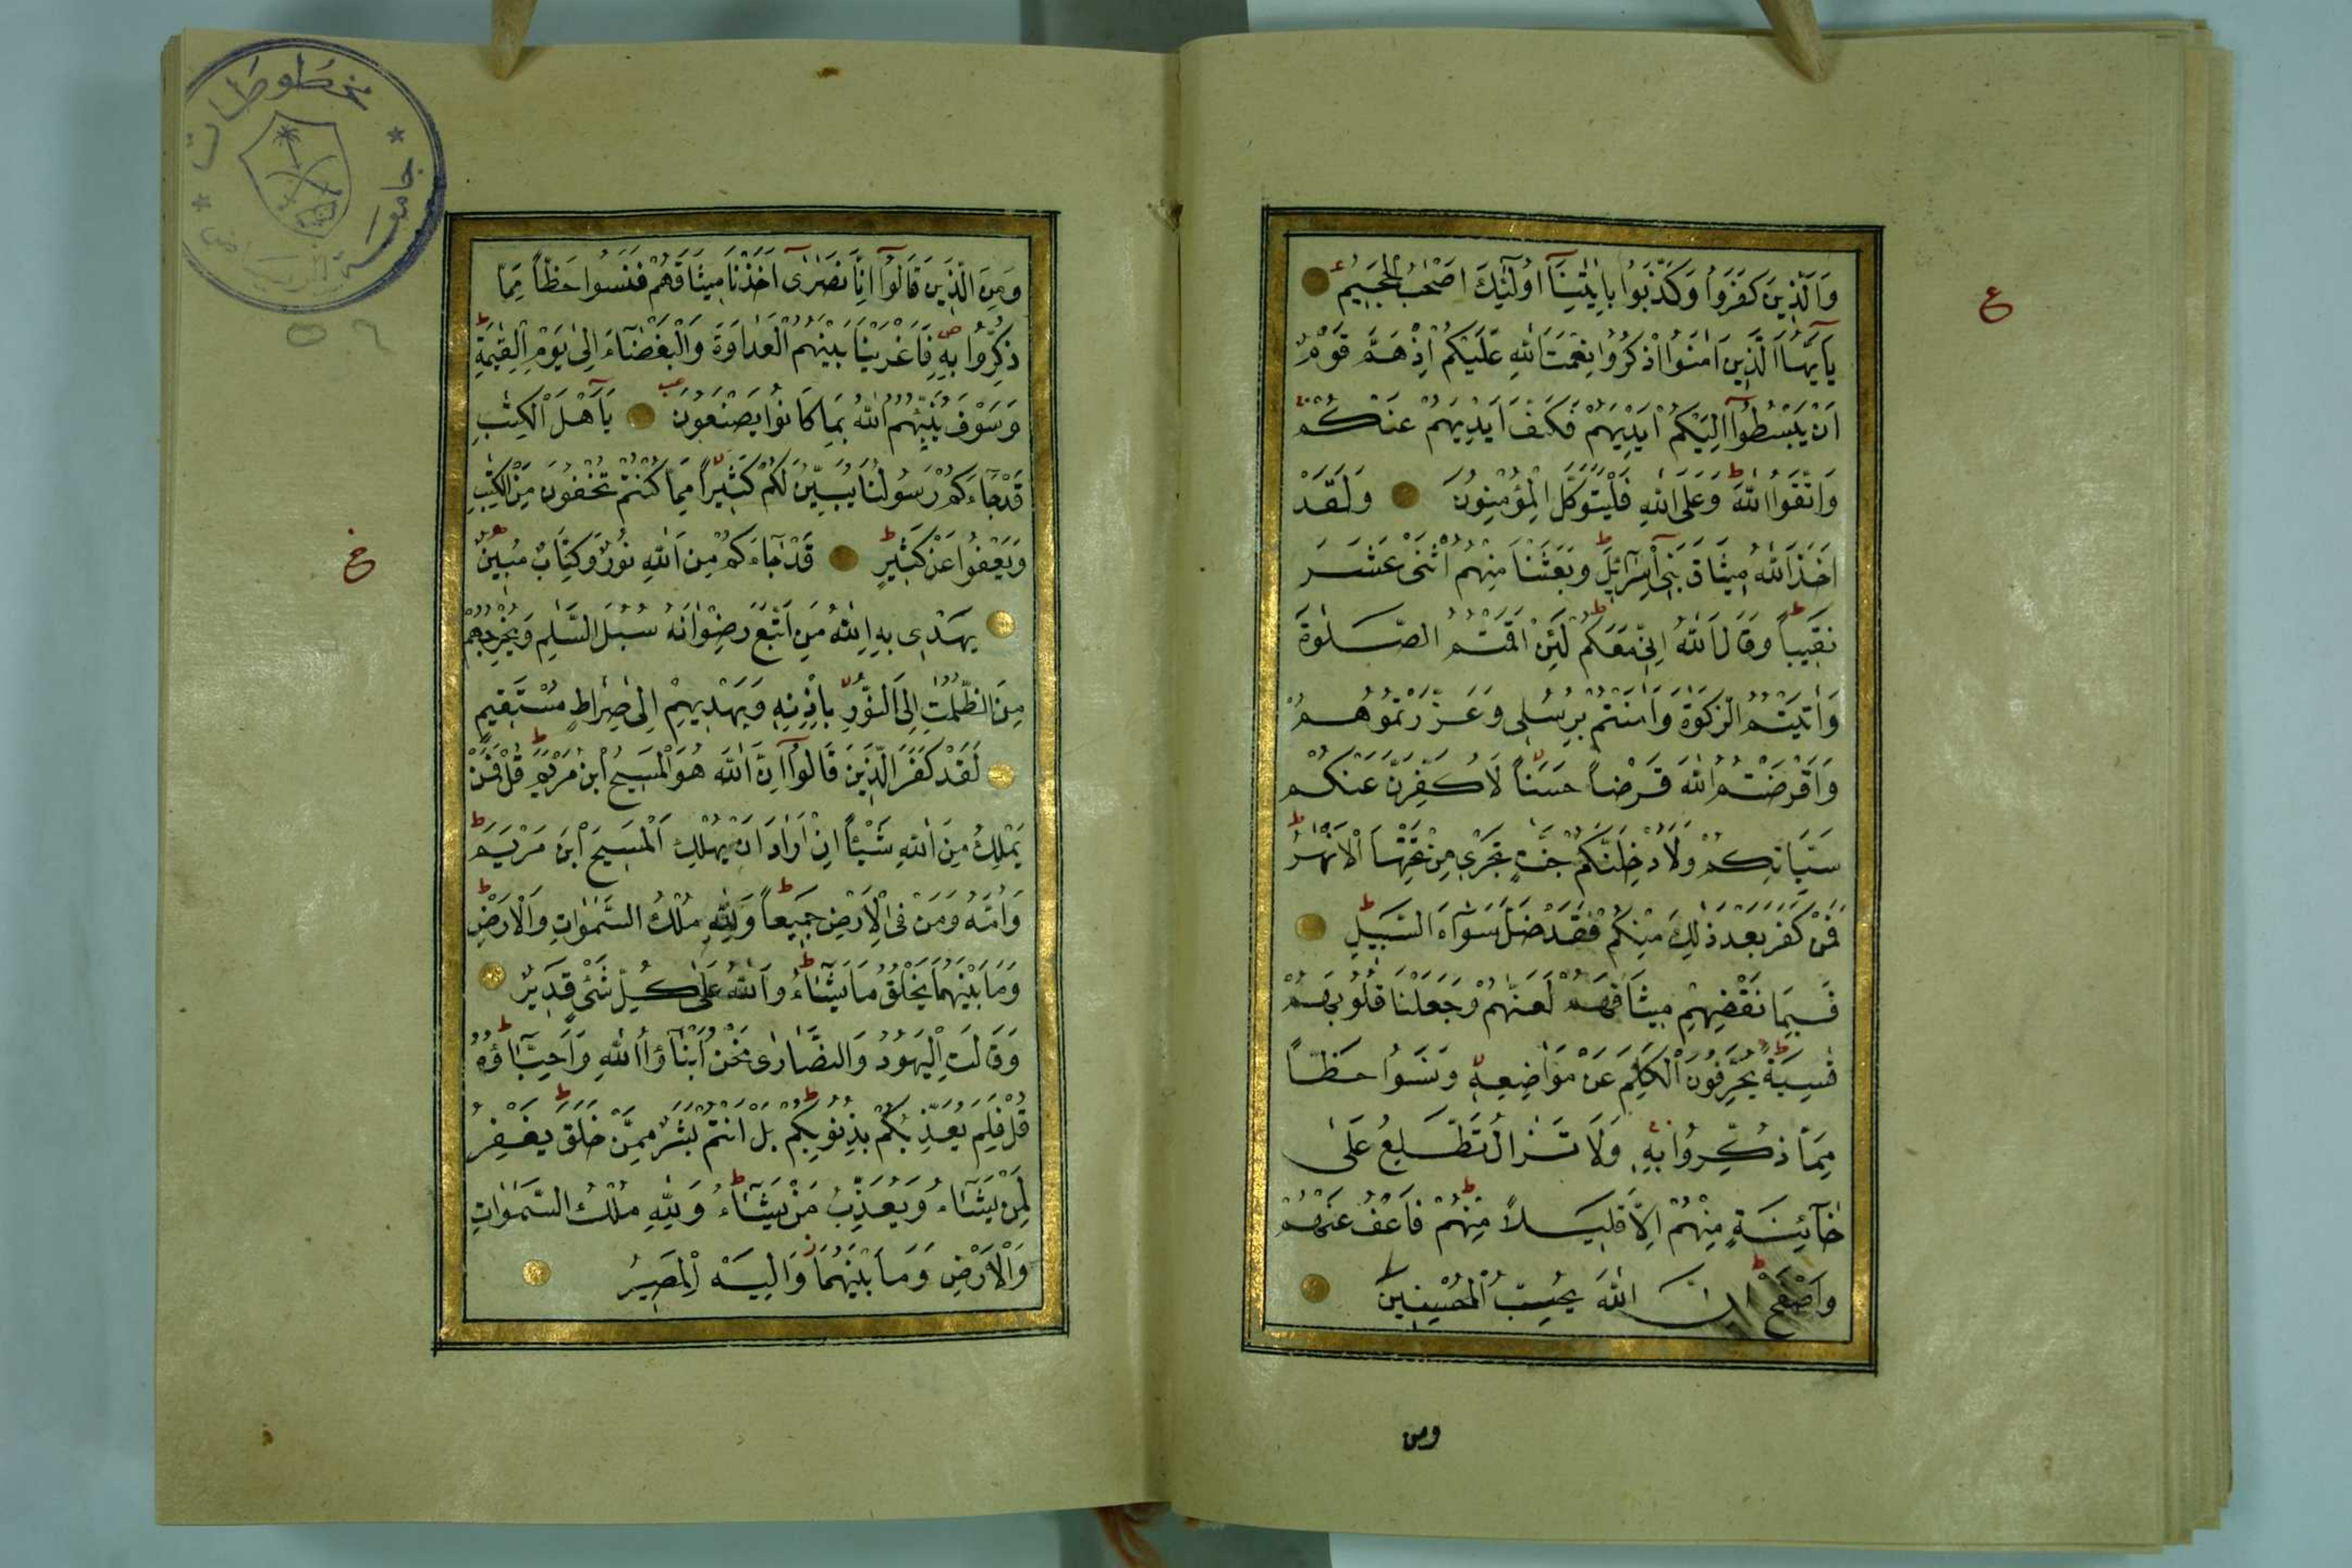 وَالَّذِينَ كَفَرُوا وَكَذَّبُوا بِاٰيٰتِنَآ اُولٰٓئِكَ اَصْحٰبُ الْجَحِيمِ
ع
يَآاَيُّهَا الَّذِينَ اٰمَنُوا اذْكُرُوا نِعْمَتَ اللّٰهِ عَلَيْكُمْ اِذْ هَمَّ قَوْمٌ
اَنْ يَبْسُطُوٓا اِلَيْكُمْ اَيْدِيَهُمْ فَكَفَّ اَيْدِيَهُمْ عَنْكُمْ
وَاتَّقُوا اللّٰهَ وَعَلَى اللّٰهِ فَلْيَتَوَكَّلِ الْمُؤْمِنُونَ وَلَقَدْ
اَخَذَ اللّٰهُ مِيثَاقَ بَنِىٓ اِسْرَآئِلَ وَبَعَثْنَا مِنْهُمُ اثْنَىْ عَشَرَ
نَقِيبًا وَقَالَ اللّٰهُ اِنِّى مَعَكُمْ لَئِنْ اَقَمْتُمُ الصَّلٰوةَ
وَاٰتَيْتُمُ الزَّكٰوةَ وَاٰمَنْتُمْ بِرُسُلِى وَعَزَّرْتُمُوهُمْ
وَاَقْرَضْتُمُ اللّٰهَ قَرْضًا حَسَنًا لَاُكَفِّرَنَّ عَنْكُمْ
سَيِّاٰتِكُمْ وَلَاُدْخِلَنَّكُمْ جَنّٰتٍ تَجْرِى مِنْ تَحْتِهَا الْاَنْهٰرُ
فَمَنْ كَفَرَ بَعْدَ ذٰلِكَ مِنْكُمْ فَقَدْ ضَلَّ سَوَآءَ السَّبِيلِ
فَبِمَا نَقْضِهِمْ مِيثَاقَهُمْ لَعَنّٰهُمْ وَجَعَلْنَا قُلُوبَهُمْ
قٰسِيَةً يُحَرِّفُونَ الْكَلِمَ عَنْ مَوَاضِعِهِ وَنَسُوا حَظًّا
مِمَّا ذُكِّرُوا بِهِ وَلَا تَزَالُ تَطَّلِعُ عَلٰى
خَآئِنَةٍ مِنْهُمْ اِلَّا قَلِيلًا مِنْهُمْ فَاعْفُ عَنْهُمْ
وَاصْفَحْ اِنَّ اللّٰهَ يُحِبُّ الْمُحْسِنِينَ
ومن
مخطوطات
جامعة الرياض
٥٦
وَمِنَ الَّذِينَ قَالُوٓا اِنَّا نَصٰرٰىٓ اَخَذْنَا مِيثَاقَهُمْ فَنَسُوا حَظًّا مِمَّا
ذُكِّرُوا بِهِ فَاَغْرَيْنَا بَيْنَهُمُ الْعَدَاوَةَ وَالْبَغْضَآءَ اِلٰى يَوْمِ الْقِيٰمَةِ
وَسَوْفَ يُنَبِّئُهُمُ اللّٰهُ بِمَا كَانُوا يَصْنَعُونَ يَآاَهْلَ الْكِتٰبِ
قَدْ جَآءَكُمْ رَسُولُنَا يُبَيِّنُ لَكُمْ كَثِيرًا مِمَّا كُنْتُمْ تُخْفُونَ مِنَ الْكِتٰبِ
وَيَعْفُوا عَنْ كَثِيرٍ قَدْ جَآءَكُمْ مِنَ اللّٰهِ نُورٌ وَكِتَابٌ مُبِينٌ
يَهْدِى بِهِ اللّٰهُ مَنِ اتَّبَعَ رِضْوَانَهُ سُبُلَ السَّلٰمِ وَيُخْرِجُهُمْ
مِنَ الظُّلُمٰتِ اِلَى النُّورِ بِاِذْنِهِ وَيَهْدِيهِمْ اِلٰى صِرَاطٍ مُسْتَقِيمٍ
لَقَدْ كَفَرَ الَّذِينَ قَالُوٓا اِنَّ اللّٰهَ هُوَ الْمَسِيحُ ابْنُ مَرْيَمَ قُلْ فَمَنْ
يَمْلِكُ مِنَ اللّٰهِ شَيْئًا اِنْ اَرَادَ اَنْ يُهْلِكَ الْمَسِيحَ ابْنَ مَرْيَمَ
وَاُمَّهُ وَمَنْ فِى الْاَرْضِ جَمِيعًا وَلِلّٰهِ مُلْكُ السَّمٰوَاتِ وَالْاَرْضِ
وَمَا بَيْنَهُمَا يَخْلُقُ مَا يَشَآءُ وَاللّٰهُ عَلٰى كُلِّ شَىْءٍ قَدِيرٌ
وَقَالَتِ الْيَهُودُ وَالنَّصَارٰى نَحْنُ اَبْنَآؤُا اللّٰهِ وَاَحِبَّآؤُهُ
قُلْ فَلِمَ يُعَذِّبُكُمْ بِذُنُوبِكُمْ بَلْ اَنْتُمْ بَشَرٌ مِمَّنْ خَلَقَ يَغْفِرُ
لِمَنْ يَشَآءُ وَيُعَذِّبُ مَنْ يَشَآءُ وَلِلّٰهِ مُلْكُ السَّمٰوَاتِ
وَالْاَرْضِ وَمَا بَيْنَهُمَا وَاِلَيْهِ الْمَصِيرُ